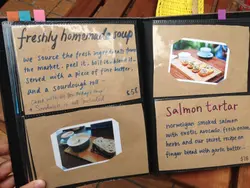 freshly homemade soup
We source the fresh ingredients from
the market, peel it, boil it, blend it,
served with a piece of fine butter,
and a sourdough roll
5€
Salmon tartar
Norwegian smoked salmon
with avocado, fresh onion,
herbs and our secret recipe on
finger bread with garlic butter